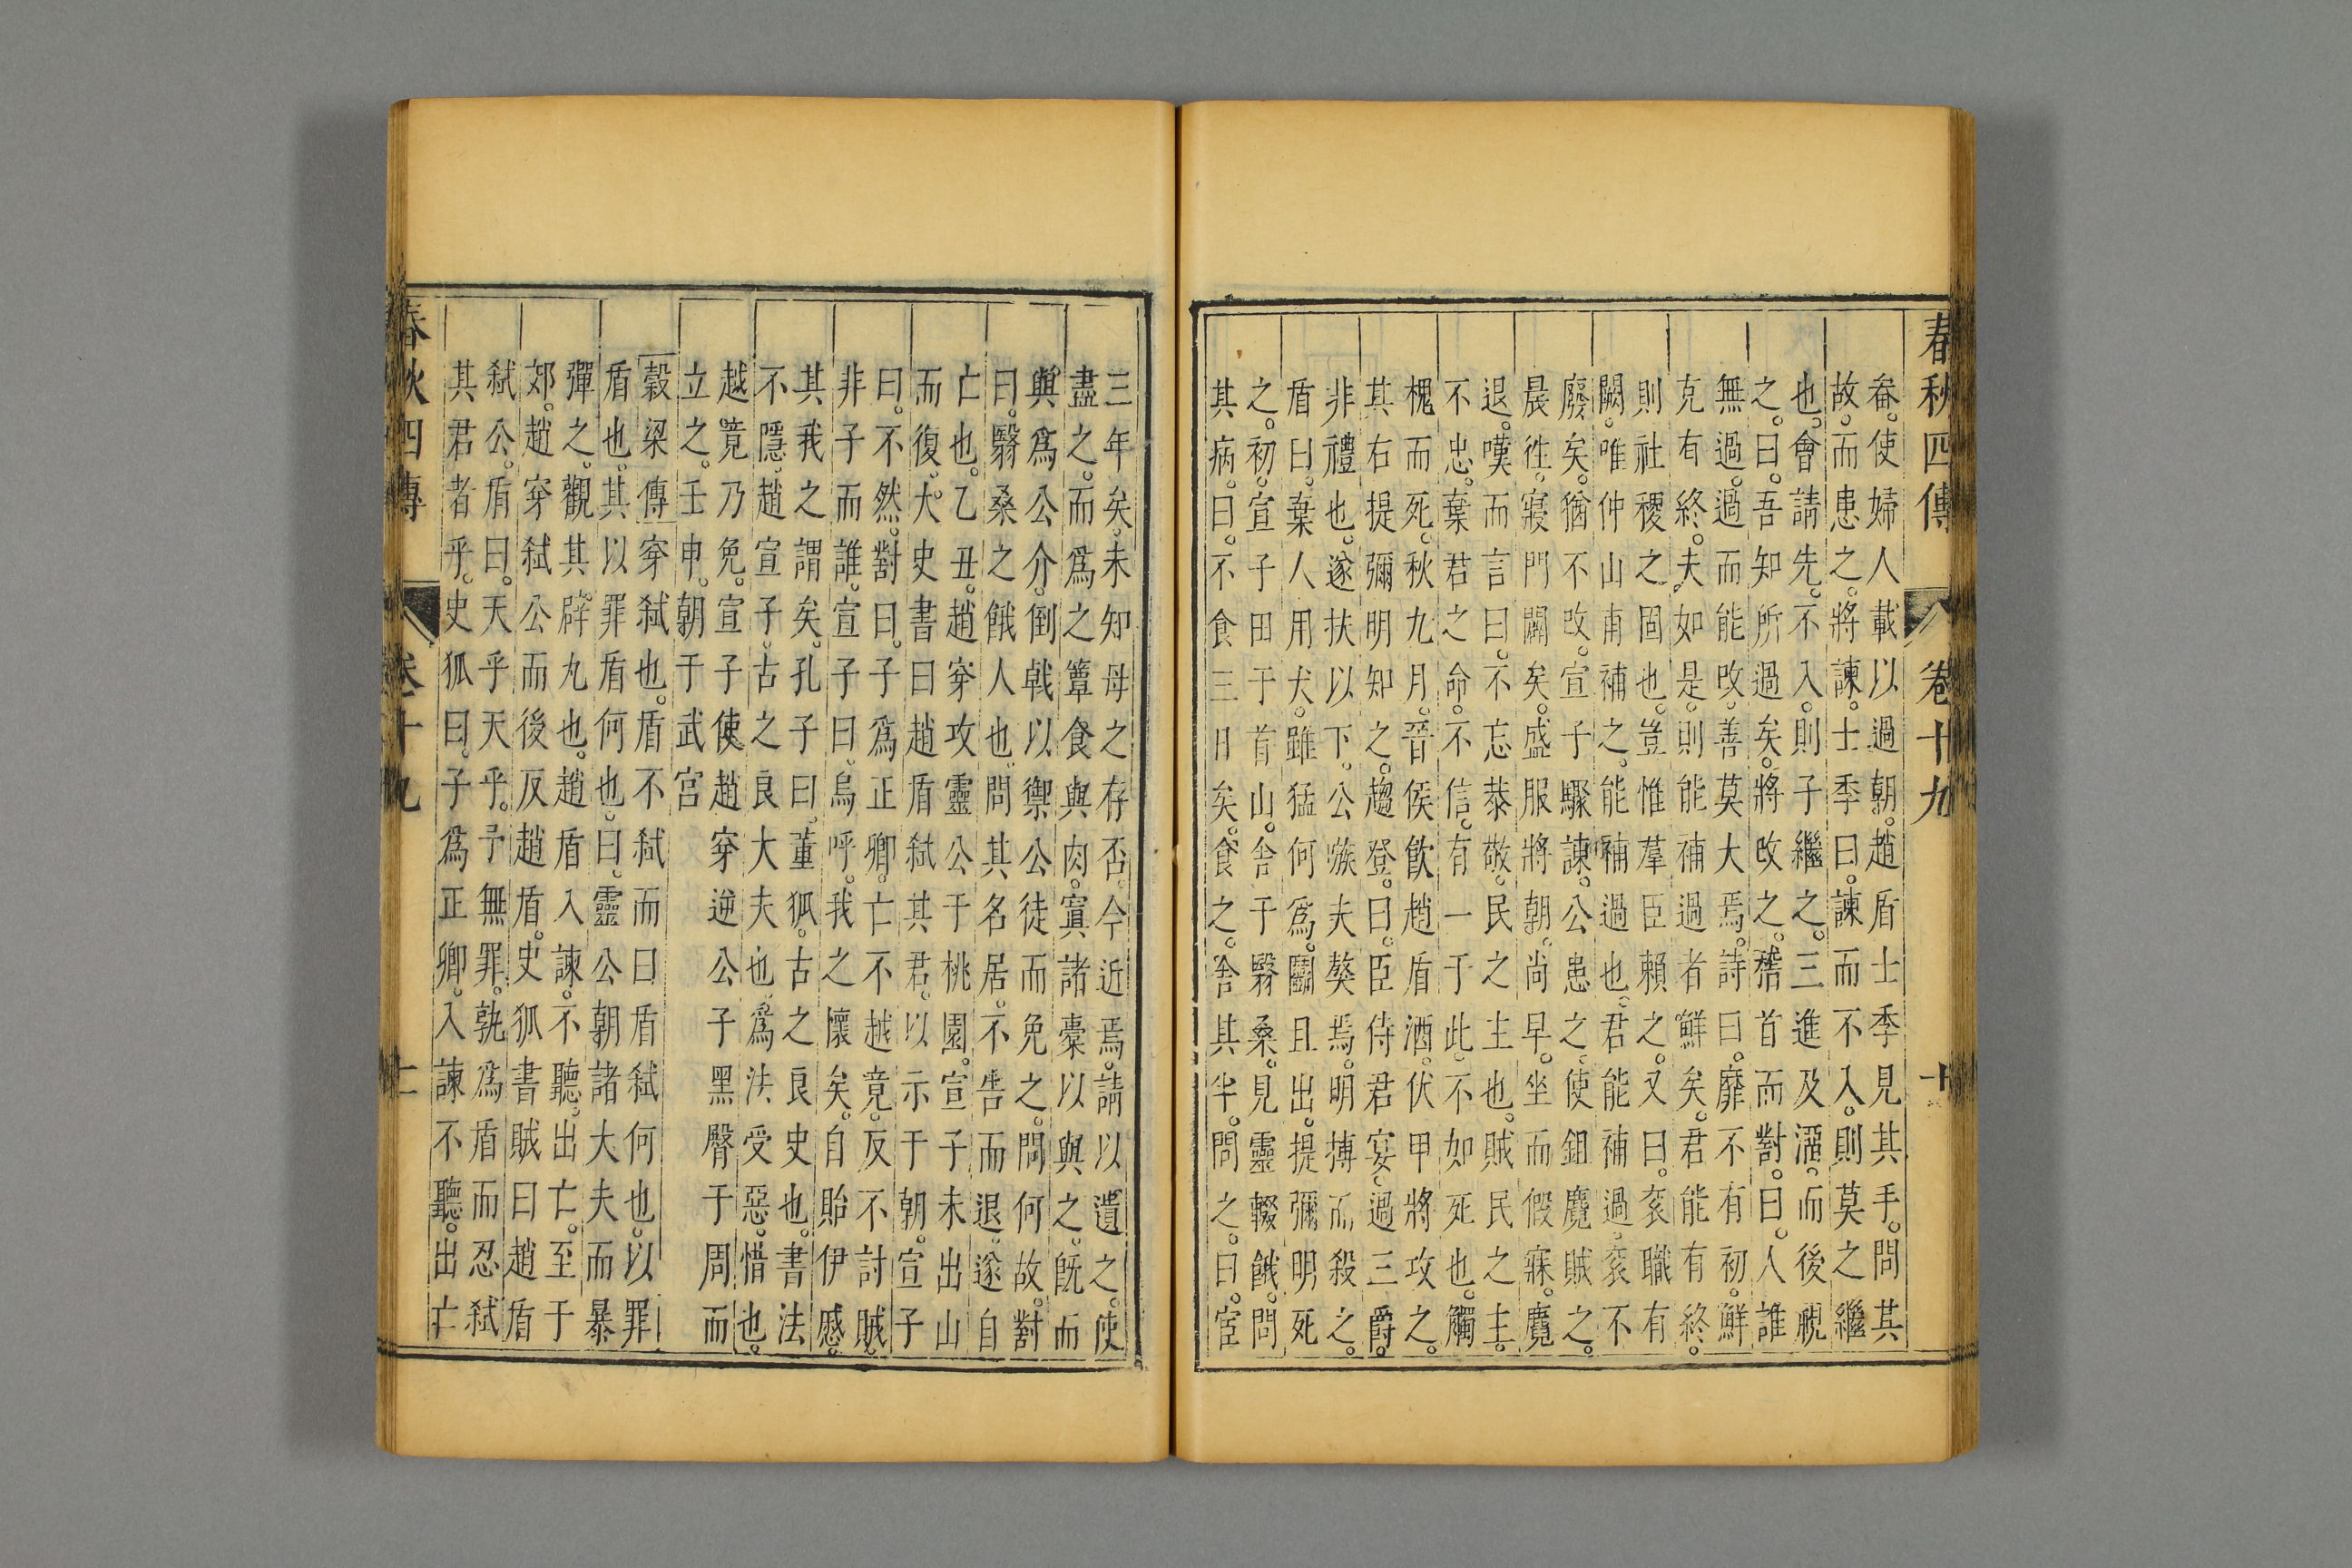 春秋四傳 卷十九 十
畚。使婦人載以過朝。趙盾士季見其手。問其
故。而患之。將諫。士季曰。諫而不入。則莫之繼
也。會請先。不入。則子繼之。三進及溜。而後視
之。曰。吾知所過矣。將改之。稽首而對。曰。人誰
無過。過而能改。善莫大焉。詩曰。靡不有初。鮮
克有終。夫如是。則能補過者鮮矣。君能有終。
則社稷之固也。豈惟羣臣賴之。又曰。袞職有
闕。唯仲山甫補之。能補過也。君能補過。袞不
廢矣。猶不改。宣子驟諫。公患之。使鉏麑賊之。
晨徃。寢門闢矣。盛服將朝。尚早。坐而假寐。麑
退。嘆而言曰。不忘恭敬。民之主也。賊民之主。
不忠。棄君之命。不信。有一于此。不如死也。觸
槐而死。秋九月。晉侯飲趙盾酒。伏甲將攻之。
其右提彌明知之。趨登。曰。臣侍君宴。過三爵。
非禮也。遂扶以下。公嗾夫獒焉。明搏而殺之。
盾曰。棄人用犬。雖猛何爲。鬬且出。提彌明死
之。初。宣子田于首山。舍于翳桑。見靈輒餓。問
其病。曰。不食三日矣。食之。舍其半。問之。曰。宦
三年矣。未知母之存否。今近焉。請以遺之。使
盡之。而爲之簞食與肉。寘諸橐以與之。旣而
與爲公介。倒戟以禦公徒而免之。問何故。對
曰。翳桑之餓人也。問其名居。不告而退。遂自
亡也。乙丑。趙穿攻靈公于桃園。宣子未出山
而復。大史書曰。趙盾弑其君。以示于朝。宣子
曰。不然。對曰。子爲正卿。亡不越竟。反不討賊。
非子而誰。宣子曰。烏呼。我之懷矣。自貽伊慼。
其我之謂矣。孔子曰。董狐。古之良史也。書法
不隱。趙宣子。古之良大夫也。爲法受惡。惜也。
越竟乃免。宣子使趙穿逆公子黑臀于周而
立之。壬申。朝于武宮
穀梁傳 穿弑也。盾不弑而曰盾弑何也。以罪
盾也。其以罪盾何也。曰。靈公朝諸大夫而暴
彈之。觀其辟丸也。趙盾入諫。不聽。出亡。至于
郊。趙穿弑公而後反趙盾。史狐書賊曰趙盾
弑公。盾曰。天乎天乎。予無罪。孰爲盾而忍弑
其君者乎。史狐曰。子爲正卿。入諫不聽。出亡
春秋四傳 卷十九